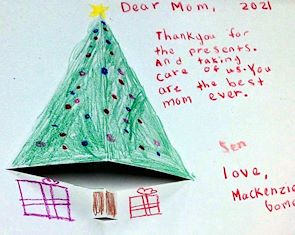 Dear Mom, 2021
Thankyou for
the presents.
And taking
care of us. You
are the best
mom ever.
love,
Mackenzie